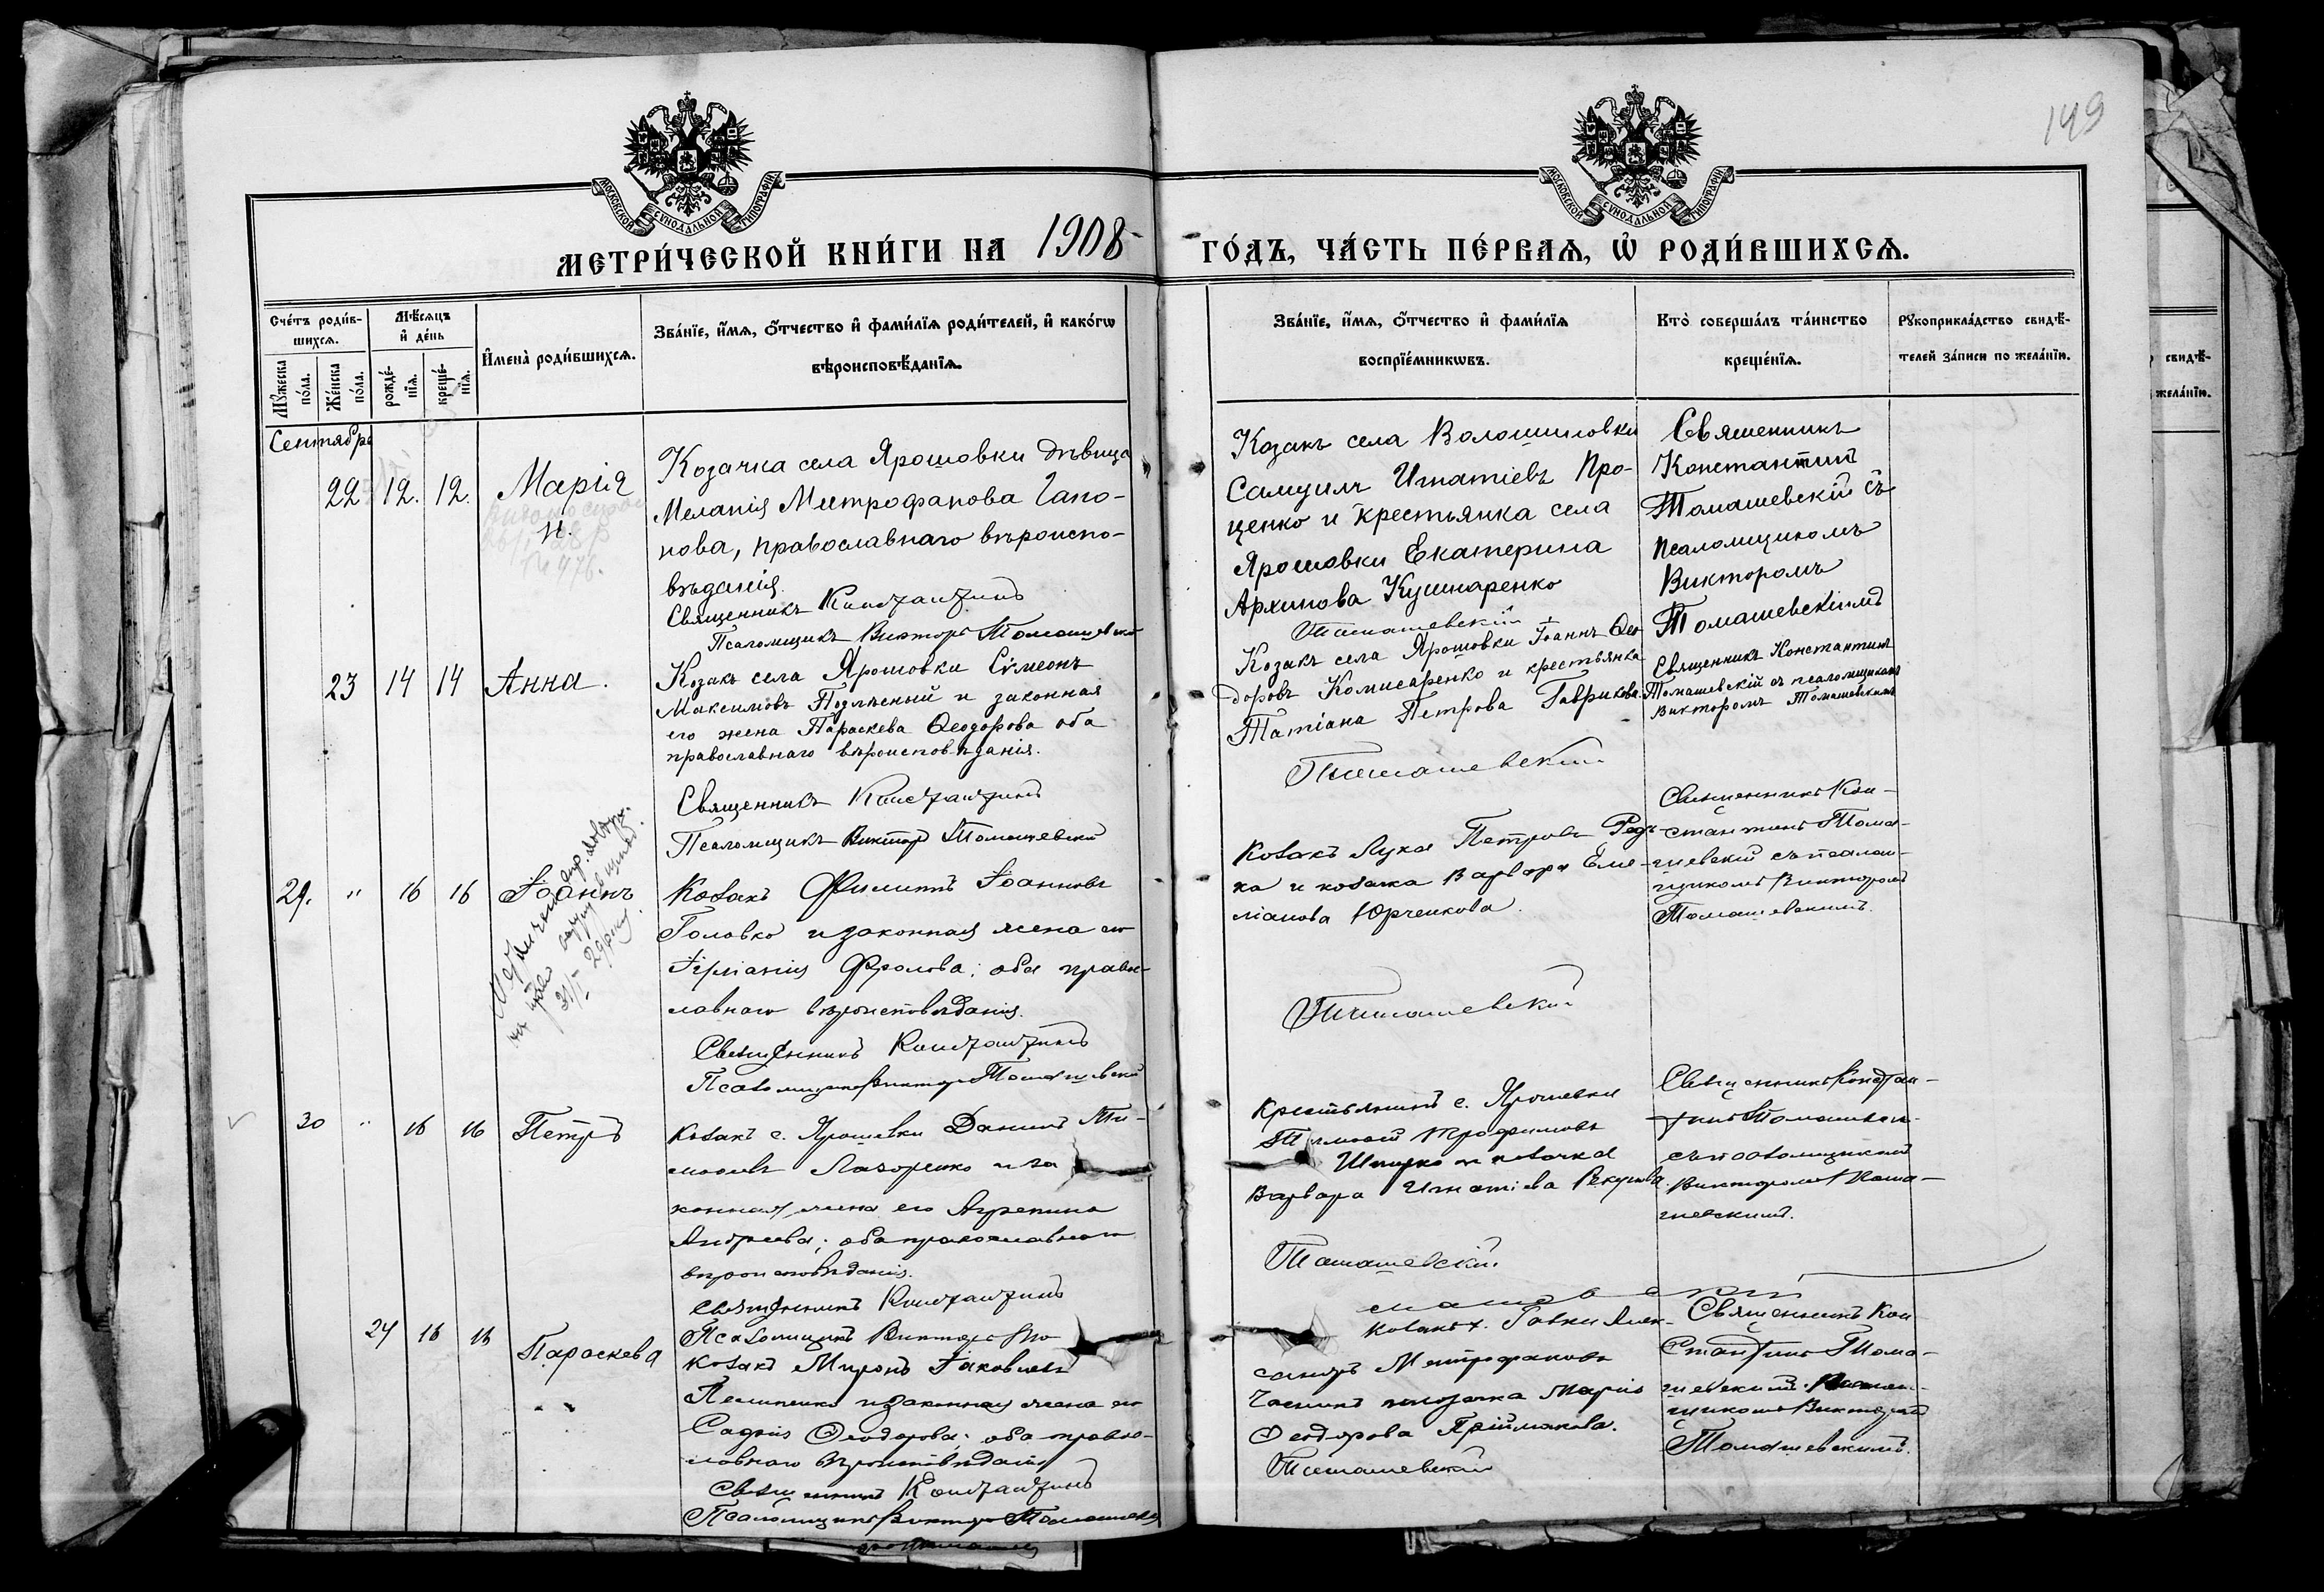 149
МОСКОВСКОЙ СѴНОДАЛЬНОЙ ТИПОГРАФІИ
МОСКОВСКОЙ СѴНОДАЛЬНОЙ ТИПОГРАФІИ
МЕТРИ́ЧЕСКОЙ КНИ́ГИ НА 1908 ГО́ДЪ, ЧА́СТЬ ПЕ́РВАѦ, Ѡ҆ РОДИ́ВШИХСѦ.
Сче́тъ роди́в-
шихсѧ.
Мꙋ́жеска по́ла.
Же́нска по́ла.
Мѣ́сѧцъ
и҆ де́нь
рожде́-
нїѧ.
креще́-
нїѧ.
И҆мена̀ роди́вшихсѧ.
Зва́нїе, и҆́мѧ, ѻ҆́тчество и҆ фами́лїѧ роди́телей, и҆ како́гѡ
вѣроисповѣ́данїѧ.
Зва́нїе, и҆́мѧ, ѻ҆́тчество и҆ фами́лїѧ
воспрїе́мникѡвъ.
Кто̀ соверша́лъ та́инство
креще́нїѧ.
Рꙋкоприкла́дство свидѣ́-
телей за́писи по жела́нїю.
свидѣ́-
жела́нїю.
Сентябрь
22 12. 12. Марія
н.
Козачка села Ярошовки дѣвица
Меланія Митрофанова Гапо-
нова, православнаго вѣроиспо-
вѣданія.
Священникъ Константинъ
Псаломщикъ Викторъ Томашевскій
Козакъ села Волошиловки
Самуилъ Игнатіевъ Про-
ценко и крестьянка села
Ярошовки Екатерина
Архипова Кушнаренко
Томашевскій
Священникъ
Константинъ
Томашевскій съ
псаломщикомъ
Викторомъ
Томашевскимъ
23 14 14 Анна.
Козакъ села Ярошовки Сѵмеонъ
Максимовъ Подлѣсный и законная
его жена Параскева Ѳеодорова оба
православнаго вѣроисповѣданія.
Священникъ Константинъ
Псаломщикъ Викторъ Томашевскій
Козакъ села Ярошовки Іоаннъ Ѳео-
доровъ Комисаренко и крестьянка
Татіана Петрова Гаврикова.
Томашевскій
Священникъ Константинъ
Томашевскій съ псаломщикомъ
Викторомъ Томашевскимъ
29. " 16 16 Іоаннъ
Козакъ Филиппъ Іоанновъ
Головко и законная жена его
Фролова; оба право-
славнаго вѣроисповѣданія.
Священникъ Константинъ
Псаломщикъ Викторъ Томашевскій
Козакъ Лука Петровъ Редь-
ка и козачка Варвара Еме-
ліанова Юрченкова.
Томашевскій
Священникъ Кон-
стантинъ Тома-
шевскій съ псалом-
щикомъ Викторомъ
Томашевскимъ.
30 " 16 16 Петръ
Козакъ с. Ярошовки Даніилъ Ти-
моѳеевъ Лазоренко и за
конная жена его Агрепина
Андреева; оба православнаго
вѣроисповѣданія.
Священникъ Константинъ
Псаломщикъ Викторъ
Крестьянинъ с. Ярошовки
Трофимовъ
и козачка
Варвара Игнатіева
Томашевскій
Священникъ Констан-
тинъ Томашевскій
съ псаломщикомъ
Викторомъ Тома-
шевскимъ.
24 16 16 Параскева
Козакъ Миронъ Іаковлевъ
и законная жена его
Ѳеодорова; оба право-
славнаго вѣроисповѣданія
Священникъ Константинъ
Псаломщикъ Викторъ Томашевскій
Козакъ х. Алек-
сандръ Митрофановъ
и козачка Марія
Ѳеодорова Приймакова.
Томашевскій
Священникъ Кон
стантинъ Тома-
шевскій
щикомъ Викторомъ
Томашевскимъ.